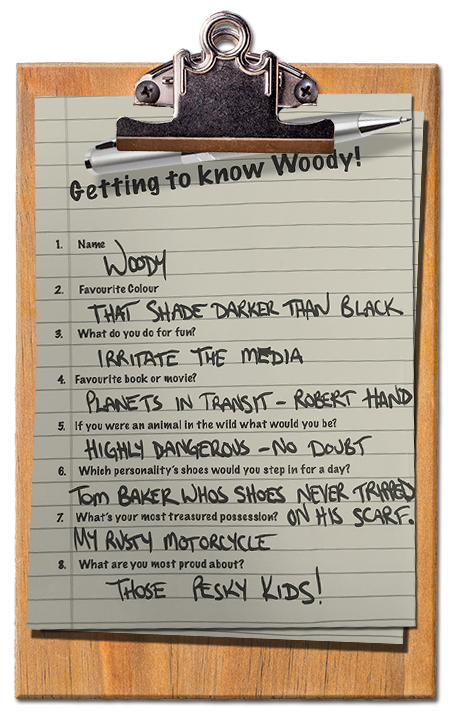 Getting to know Woody!
1. Name
WOODY
2. Favourite Colour
THAT SHADE DARKER THAN BLACK
3. What do you do for fun?
IRRITATE THE MEDIA
4. Favourite book or movie?
PLANETS IN TRANSIT – ROBERT HAND
5. If you were an animal in the wild what would you be?
HIGHLY DANGEROUS – NO DOUBT
6. Which personality's shoes would you step in for a day?
TOM BAKER WHOS SHOES NEVER TRIPPED
7. What's your most treasured possession? ON HIS SCARF.
MY RUSTY MOTORCYCLE
8. What are you most proud about?
THOSE PESKY KIDS!